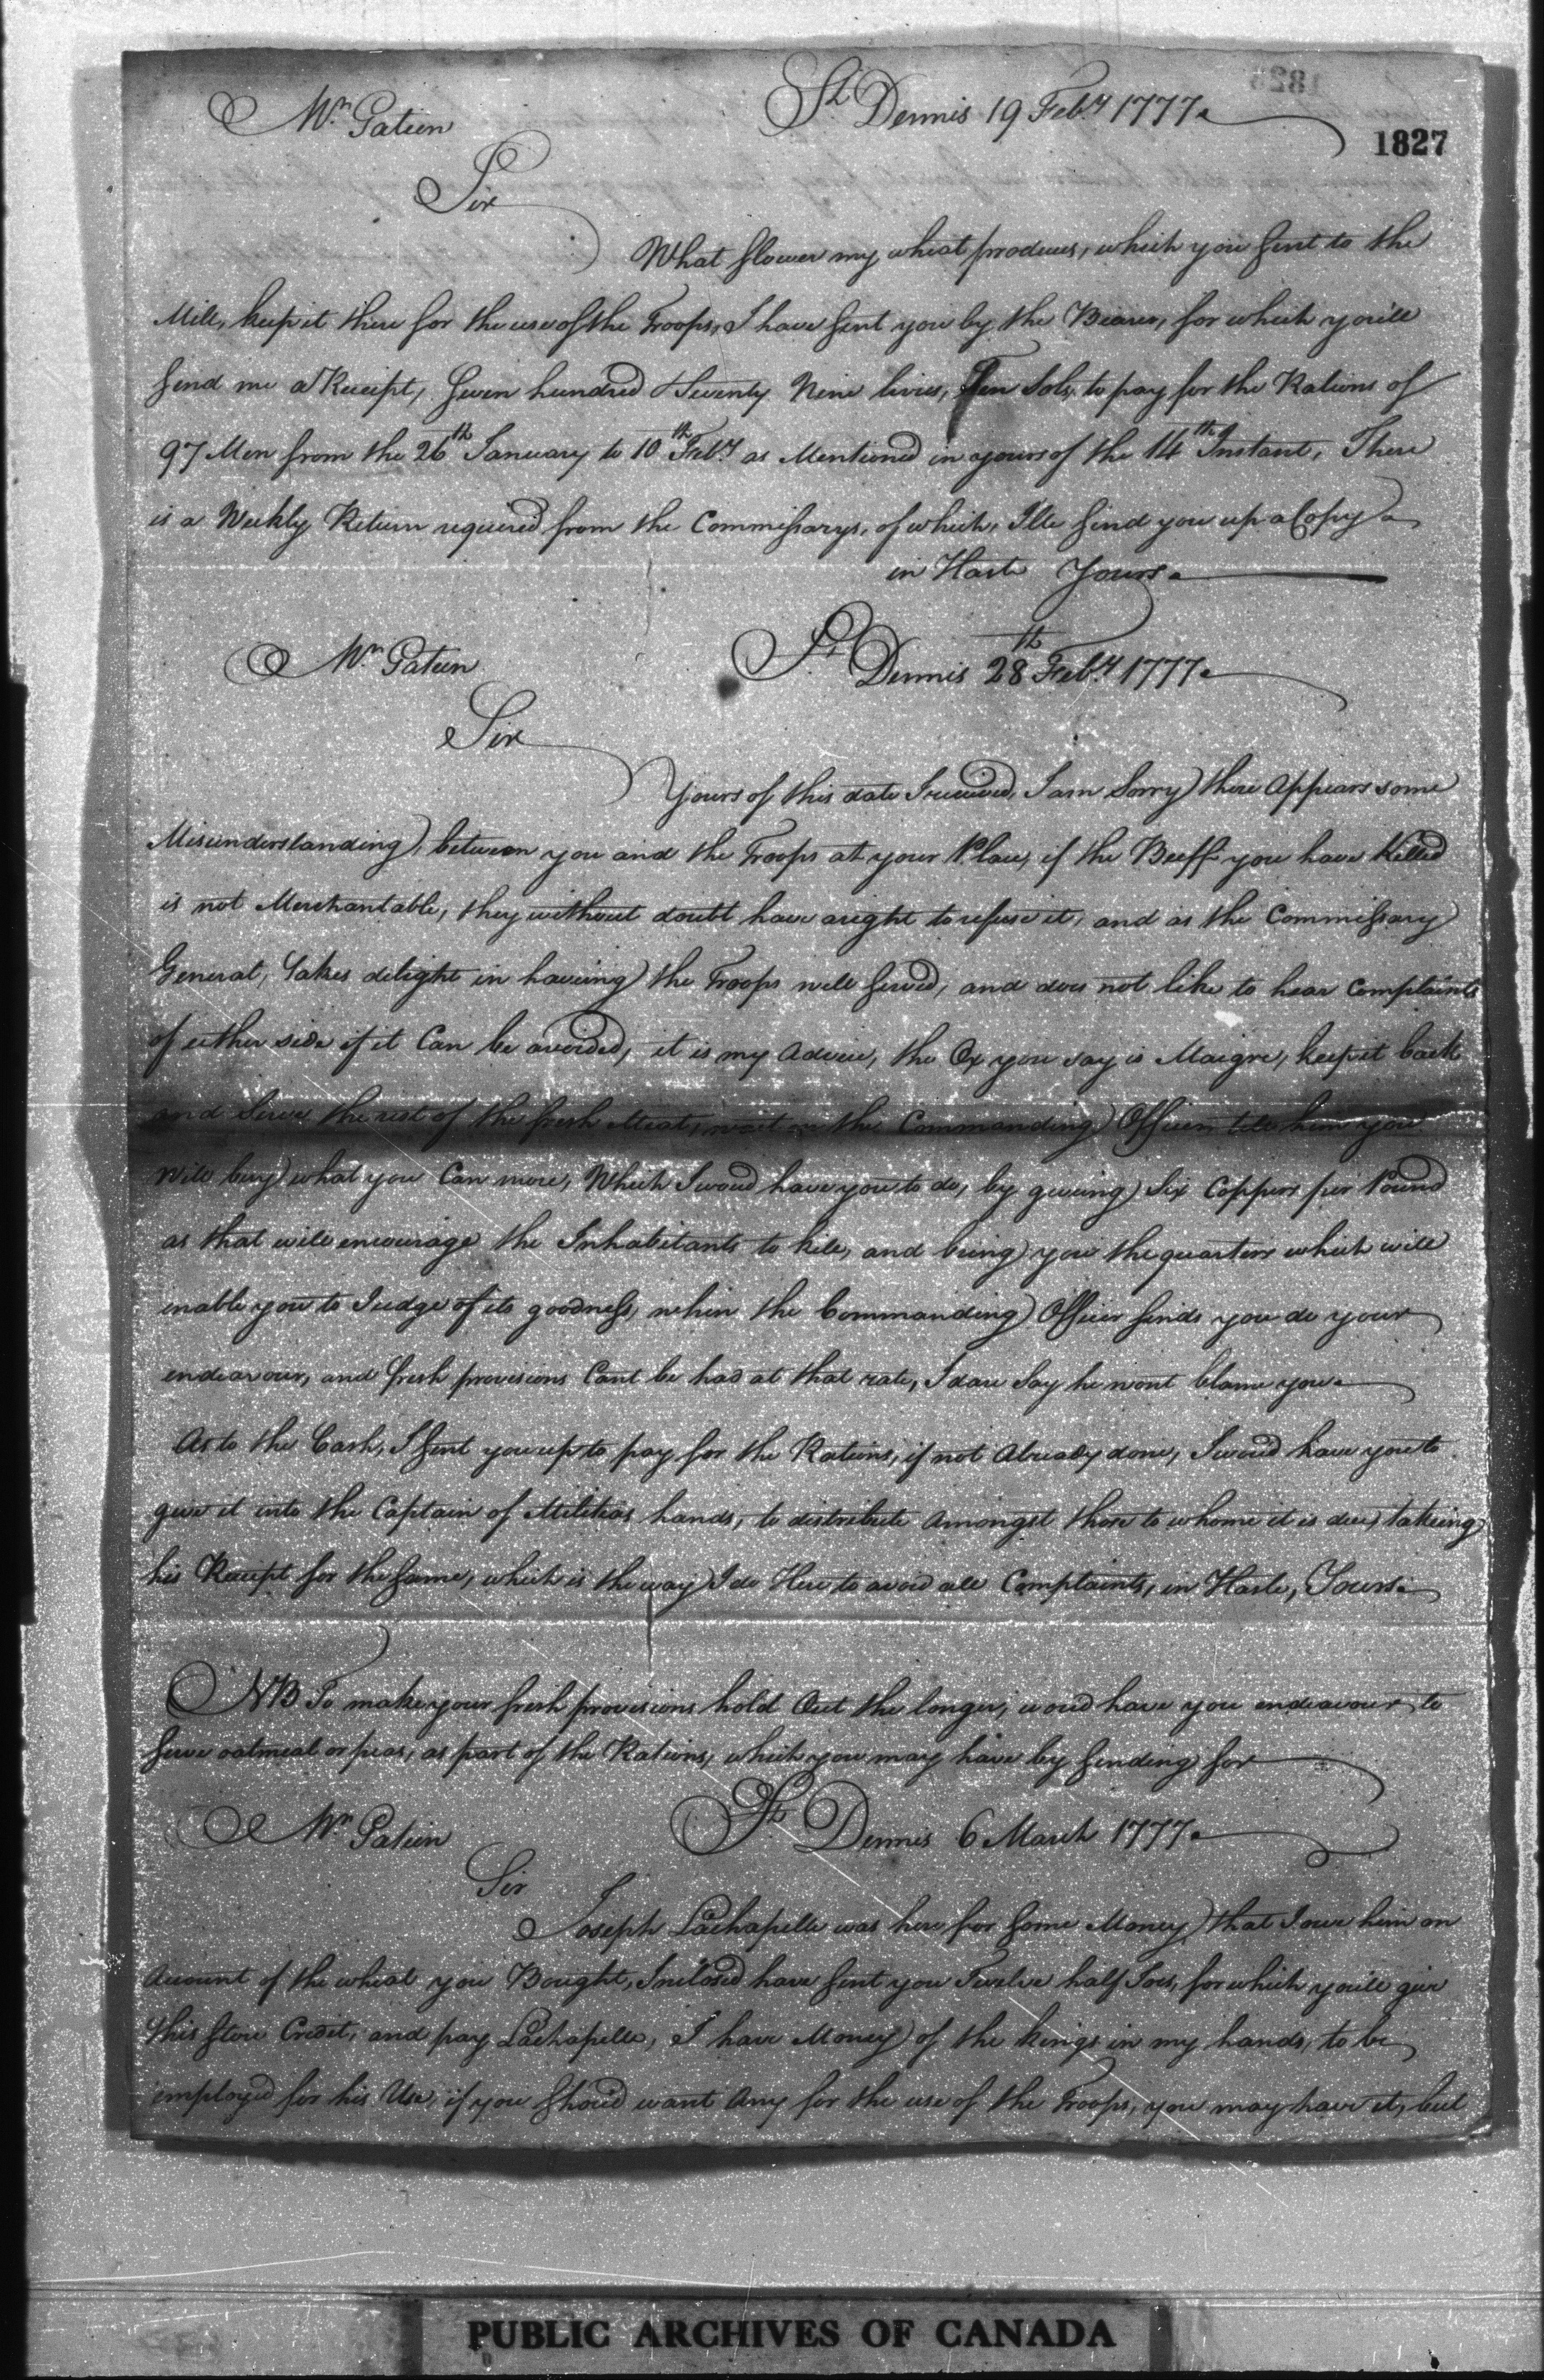 St. Dennis 19 Feb.y 1777
Mr. Patien
1827
Sir
What flower my wheat produces, which you sent to the
Mill, keep it there for the use of the Troops, I have sent you by the Bearer, for which you'll
send me a Receipt, Seven hundred & Seventy Nine livres, Ten Sols, to pay for the Rations of
97 Men from the 26th January to 10th Feb.y as Mentioned in yours of the 14th Instant, There
is a Weekly Return required from the Commissarys, of which, I'll send you up a Copy
in Haste Yours
Mr. Patien
St. Dennis 28th Feb.y 1777
Sir
Yours of this date I received, I am Sorry there Appears some
Misunderstanding, between you and the Troops at your Place, if the Beeff you have Killed
is not Merchantable, they without doubt have a right to refuse it, and as the Commissary
General, takes delight in haveing the Troops well served, and does not like to hear Complaints
of either side if it Can be avoided, it is my Advice, the Ox you say is Maigre, keep it back
and Serve the rest of the fresh Meat, wait on the Commanding Officer tell him you
will buy what you Can more, Which I woud have you to do, by giveing Six Coppers per Pound
as that will encourage the Inhabitants to kill, and bring you the quarters which will
enable you to Judge of its goodness, when the Commanding Officer finds you do your
endeavour, and fresh provisions Cant be had at that rate, I dare Say he wont blame you
As to the Cash, I sent you up to pay for the Rations, if not Already done, I woud have you to
give it into the Captain of Militias hands, to distribute Amongst those to whome it is due, takeing
his Receipt for the same, which is the way I do Here to avoid all Complaints, in Haste, Yours
NB To make your fresh provisions hold Out the longer, woud have you endeavour to
serve oatmeal or peas, as part of the Rations, which you may have by sending for
Mr. Patien
St. Dennis 6 March 1777
Sir
Joseph Lachapelle was here for some Money that I owe him on
Account of the wheat you Bought, Inclosed have sent you Twelve half Joes, for which you'll give
this store Credit, and pay Lachapelle, I have Money of the kings in my hands, to be
employed for his Use, if you shoud want Any for the use of the Troops, you may have it, but
PUBLIC ARCHIVES OF CANADA